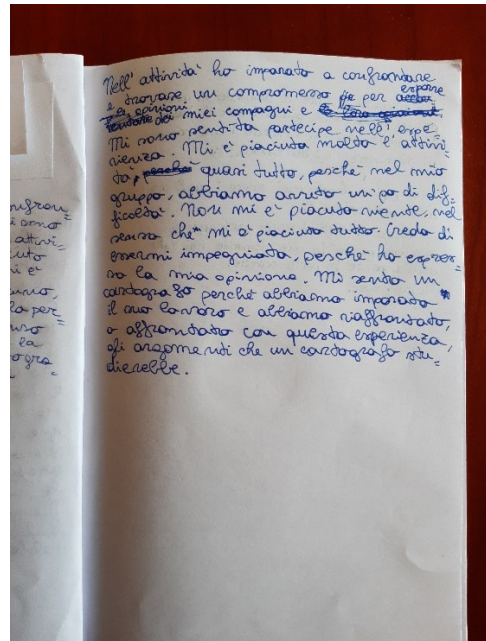 Nell' attività ho imparato a confrontare
e trovare un compromesso per esporre
le opinioni
dei miei compagni e
Mi sono sentita partecipe nell' espe-
rienza. Mi è piaciuta molto l' attivi-
tà, quasi tutto, perché nel mio
gruppo, abbiamo avuto un po di dif-
ficoltà. Non mi è piaciuto niente, nel
senso che mi è piaciuto tutto. Credo di
essermi impegnata, perché ho espres-
so la mia opinione. Mi sento un
cartografo perché abbiamo imparato
il suo lavoro e abbiamo riaffrontato,
o affrontato con questa esperienza,
gli argomenti che un cartografo stu-
dierebbe.
i sono
attivi-
uto
i è
la per-
la
ogra